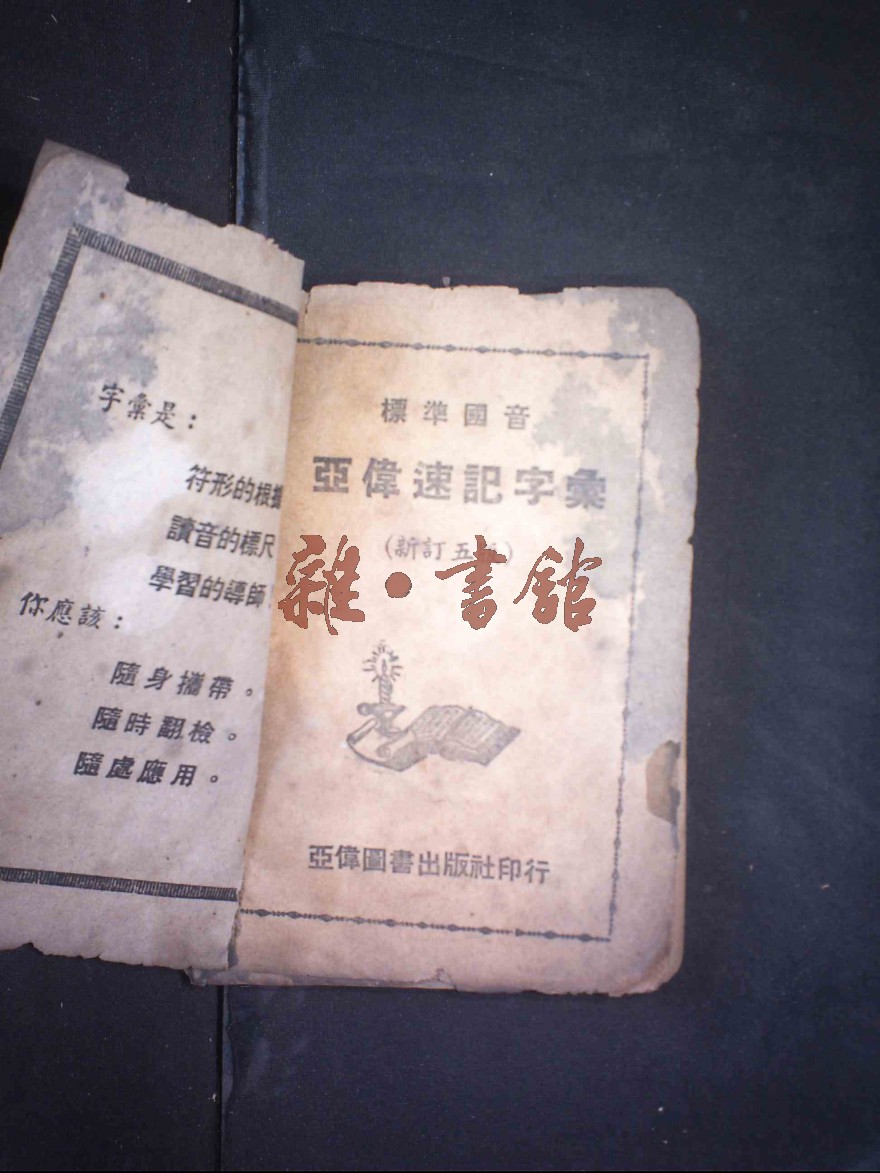 字彙是：
符形的根據
讀音的標尺
學習的導師
你應該：
隨身攜帶。
隨時翻檢。
隨處應用。
標準國音
亞偉速記字彙
(新訂五版)
雜·書館
亞偉圖書出版社印行